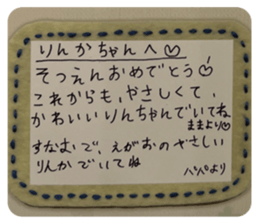 りんかちゃんへ♡
そつえんおめでとう♡
これからも、やさしくて、
かわいいりんちゃんでいてね
ままより♡
すなおで、えがおのやさしい
りんかでいてね
パパより